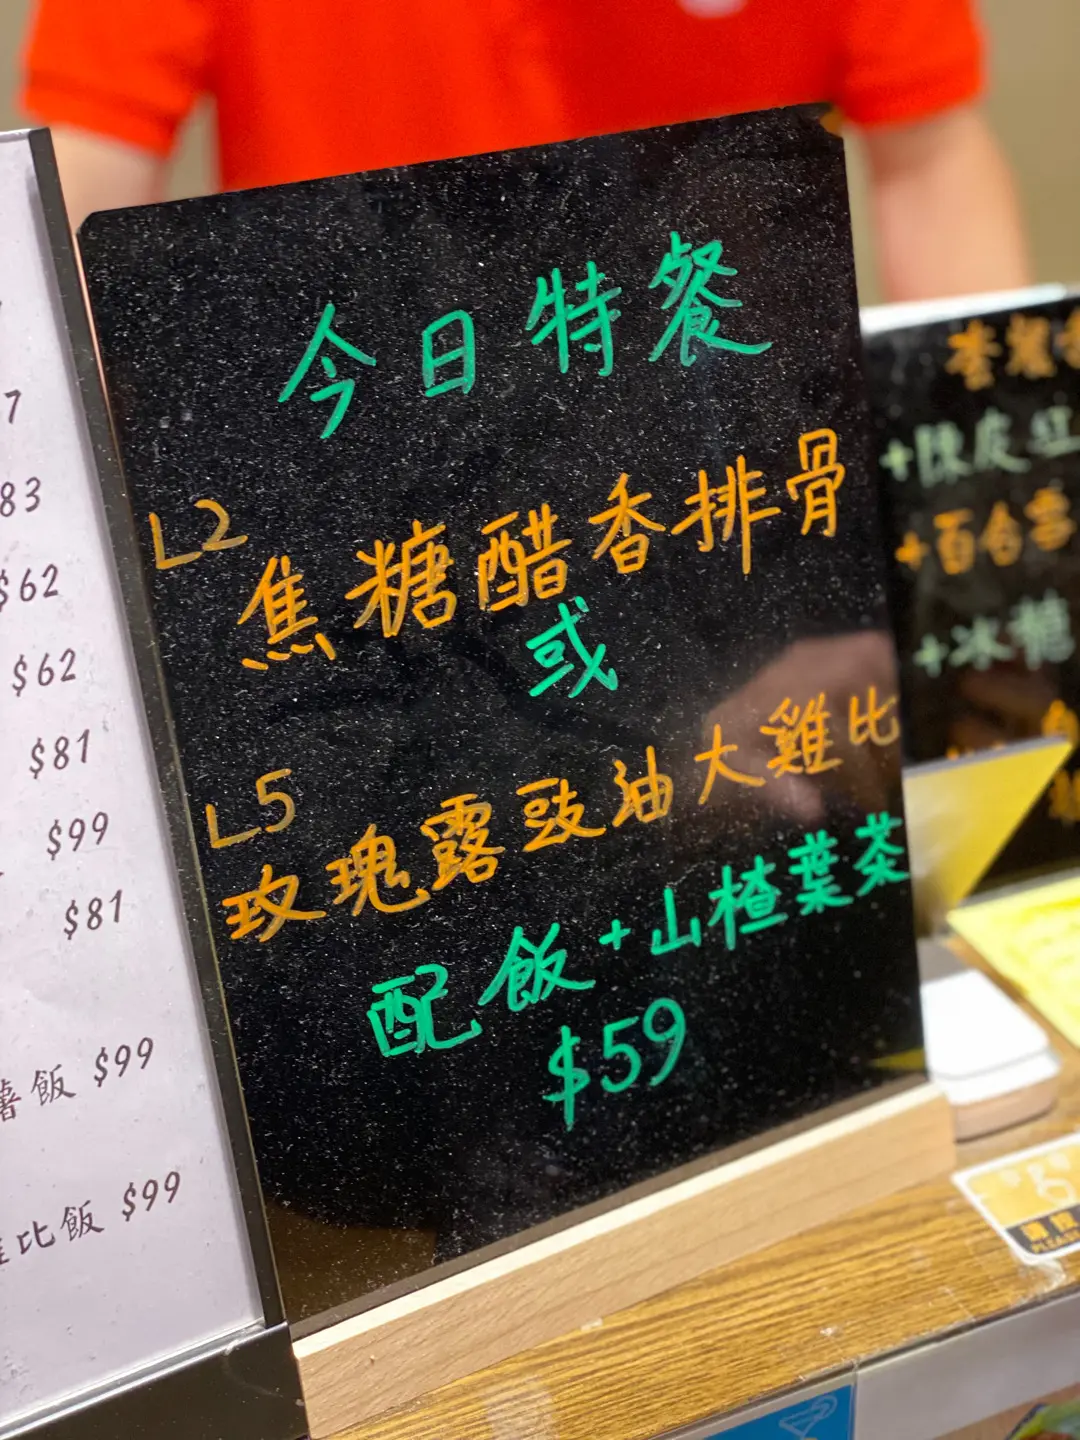 今日特餐
L2
焦糖醋香排骨
或
L5
玫瑰露豉油大雞比
配飯+山楂葉茶
$59
7
83
$62
$62
$81
$99
$81
薯飯 $99
比飯 $99
+陳皮紅
+百合雪
+冰糖